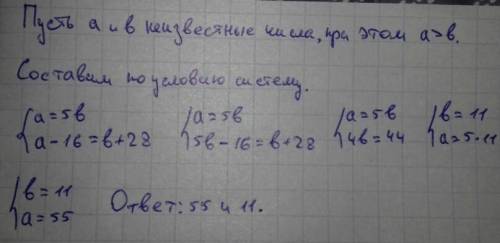 Пусть a и b неизвестные числа, при этом a>b.
Составим по условию систему.
{a=5b {a=5b {a=5b {b=11
{a-16=b+28 {5b-16=b+28 {4b=44 {a=5·11
{b=11
{a=55 Ответ: 55 и 11.